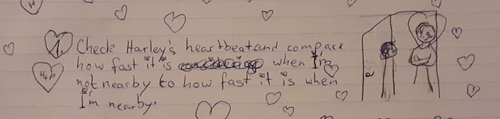 1 Check Harley's heartbeat and compare
how fast it is when I'm
not nearby to how fast it is when
I'm nearby.